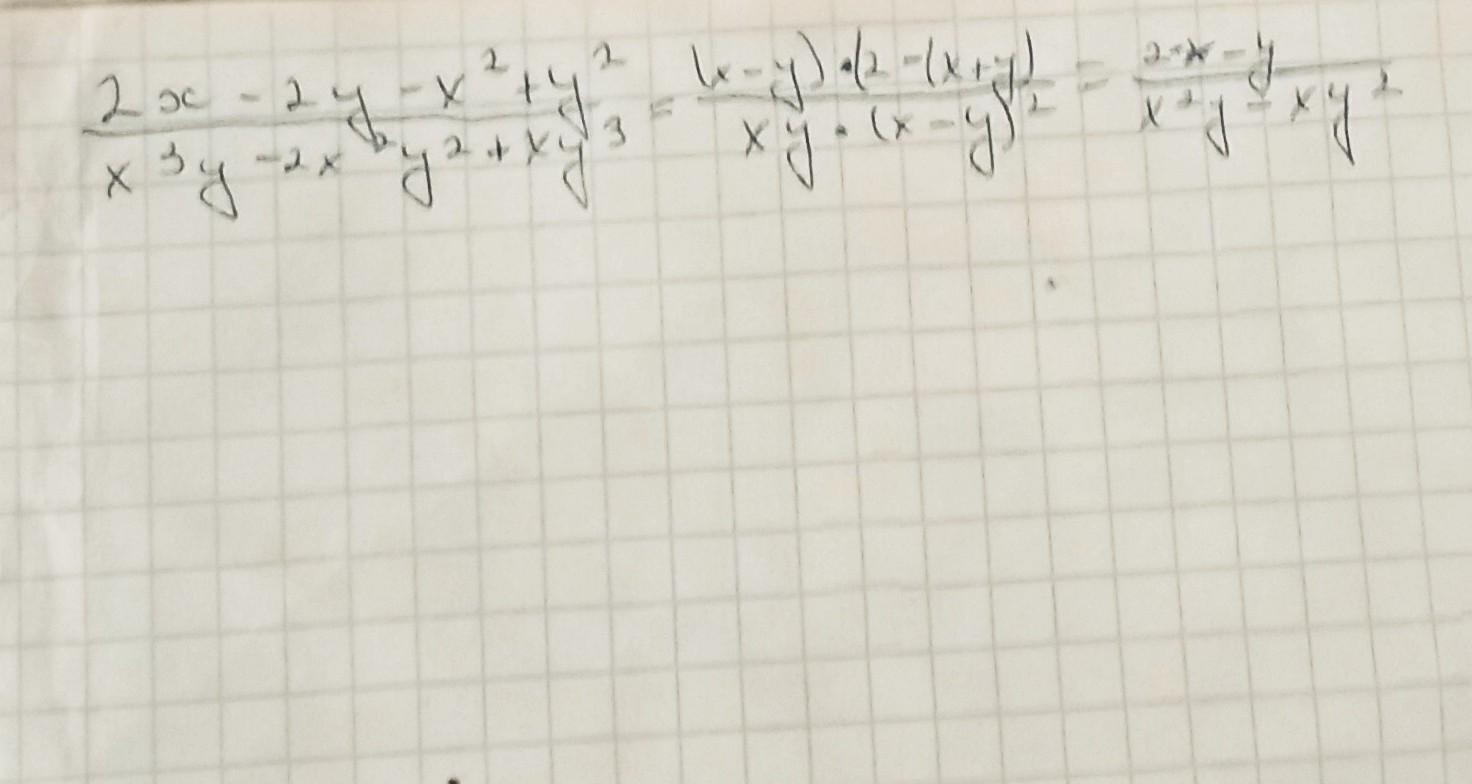 (2x - 2y - x² + y²)/(x³y - 2x²y² + xy³) = ((x - y)·(2 - (x + y))/(xy·(x - y)²) = (2 - x - y)/(x²y - xy²)